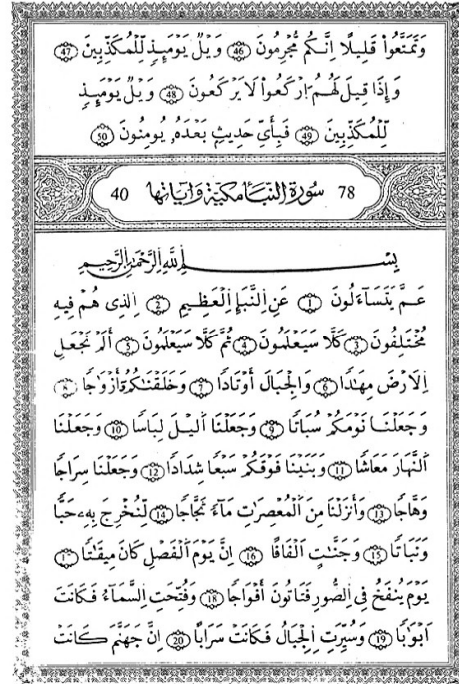 وَتَمَتَّعُوا۟ قَلِيلًا اِنَّكُم مُّجْرِمُونَ 46 وَيْلٌ يَوْمَئِذٍ لِّلْمُكَذِّبِينَ 47
وَإِذَا قِيلَ لَهُمُ ارْكَعُوا۟ لَا يَرْكَعُونَ 48 وَيْلٌ يَوْمَئِذٍ
لِّلْمُكَذِّبِينَ 49 فَبِأَيِّ حَدِيثٍ بَعْدَهُۥ يُومِنُونَ 50
78 سُورَةُ النَّبَإِ مَكِّيَّة وَاٰيَاتُهَا 40
بِسْمِ اِللَّهِ اِلرَّحْمَٰنِ اِلرَّحِيمِ
عَمَّ يَتَسَآءَلُونَ 1 عَنِ اِلنَّبَإِ اِلْعَظِيمِ 2 اِلذِى هُمْ فِيهِ
مُخْتَلِفُونَ 3 كَلَّا سَيَعْلَمُونَ 4 ثُمَّ كَلَّا سَيَعْلَمُونَ 5 أَلَمْ نَجْعَلِ
اِلَارْضَ مِهَٰدًا 6 وَالْجِبَالَ أَوْتَادًا 7 وَخَلَقْنَٰكُمُۥ أَزْوَٰجًا 8
وَجَعَلْنَا نَوْمَكُمْ سُبَاتًا 9 وَجَعَلْنَا اَليْلَ لِبَاسًا 10 وَجَعَلْنَا
اَلنَّهَارَ مَعَاشًا 11 وَبَنَيْنَا فَوْقَكُمْ سَبْعًا شِدَادًا 12 وَجَعَلْنَا سِرَاجًا
وَهَّاجًا 13 وَأَنزَلْنَا مِنَ اَلْمُعْصِرَٰتِ مَآءً ثَجَّاجًا 14 لِّنُخْرِجَ بِهِۦ حَبًّا
وَنَبَاتًا 15 وَجَنَّٰتٍ اَلْفَافًا 16 اِنَّ يَوْمَ اَلْفَصْلِ كَانَ مِيقَٰتًا 1
يَوْمَ يُنفَخُ فِى اِلصُّورِ فَتَاتُونَ أَفْوَاجًا 18 وَفُتِّحَتِ اِلسَّمَآءُ فَكَانَتَ
اَبْوَٰبًا 19 وَسُيِّرَتِ اِلْجِبَالُ فَكَانَتْ سَرَابًا 20 اِنَّ جَهَنَّمَ كَانَتْ